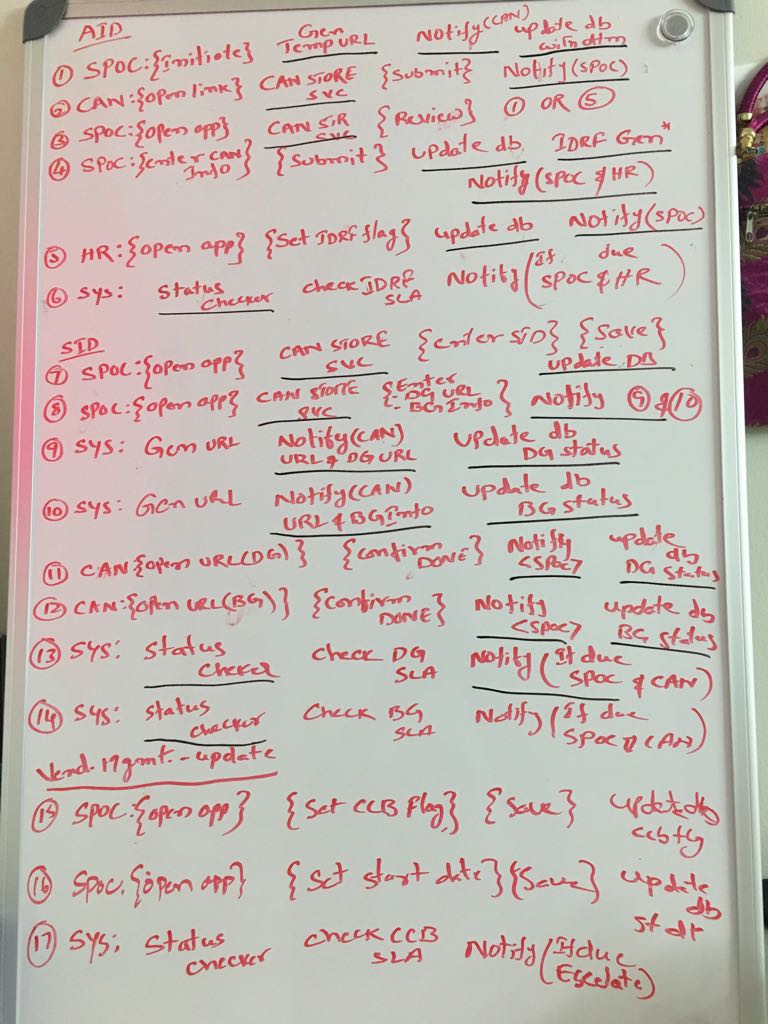 AID
① SPOC:{Initiate} Gen Temp URL Notify(CAN) update db with Atm
② CAN:{open link} CAN STORE SVC {Submit} Notify(SPOC)
③ SPOC:{open app} CAN STR SVC {Review} ① OR ⑤
④ SPOC:{enter CAN Info} {Submit} update db IDRF Gen*
Notify(SPOC & HR)
⑤ HR:{open app} {Set IDRF flag} update db Notify(SPOC)
⑥ Sys: Status checker check IDRF SLA Notify(If due SPOC & HR)
SID
⑦ SPOC:{open app} CAN STORE SVC {enter SID} {Save} update DB
⑧ SPOC:{open app} CAN STORE SVC {Enter - DG URL - BG Info} Notify ⑨ & ⑩
⑨ SYS: Gen URL Notify(CAN) URL & DG URL update db DG status
⑩ SYS: Gen URL Notify(CAN) URL & BG Info update db BG status
⑪ CAN:{open URL(DG)} {Confirm DONE} Notify <SPOC> update db DG status
⑫ CAN:{open URL(BG)} {Confirm DONE} Notify <SPOC> update db BG status
⑬ SYS: Status cheker check DG SLA Notify(If due SPOC & CAN)
⑭ SYS: Status checker Check BG SLA Notify(If due SPOC & CAN)
Vend. Mgmt. - update
⑮ SPOC:{open app} {Set CCB flag} {Save} update db ccb flg
⑯ SPOC:{open app} {Set start date} {Save} update db st dt
⑰ SYS: Status checker check CCB SLA Notify(If due Escelate)